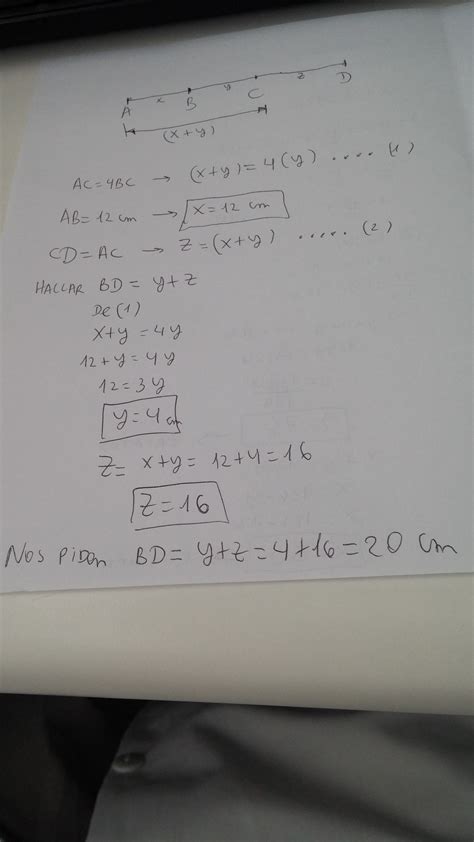 x y z
A B C D
(x+y)
AC=4BC → (x+y)=4(y) .... (1)
AB=12cm → x=12 cm
CD=AC → Z=(x+y) ..... (2)
HALLAR BD = y+z
De (1)
x+y = 4y
12+y = 4y
12=3y
y=4cm
Z= x+y= 12+4=16
Z=16
NOS PIDEN BD= y+z=4+16=20 cm